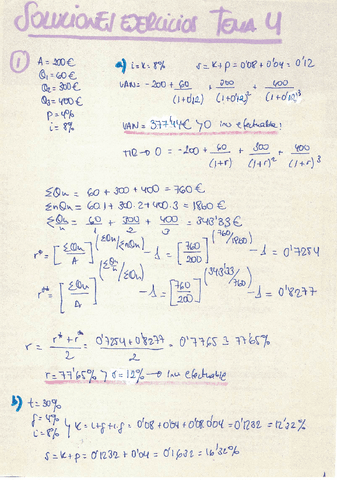 SOLUCIONES EJERCICIOS TEMA 4
① A = 200€ a) i = k = 8% s = k + p = 0'08 + 0'04 = 0'12
Q₁ = 60€
Q₂ = 300€ VAN = -200 + 60/(1+0'12) + 300/(1+0'12)² + 400/(1+0'12)³
Q₃ = 400€
p = 4%
i = 8% VAN = 377'44€ > 0 inv efectuable!
TIR → 0 = -200 + 60/(1+r) + 300/(1+r)² + 400/(1+r)³
ΣQn = 60 + 300 + 400 = 760€
ΣnQn = 60·1 + 300·2 + 400·3 = 1860€
ΣQn/n = 60/1 + 300/2 + 400/3 = 343'33€
r* = [ΣQn/A]^(ΣQn/ΣnQn) - 1 = [760/200]^(760/1860) - 1 = 0'7254
r** = [ΣQn/A]^(ΣQn/n/ΣQn) - 1 = [760/200]^(343'33/760) - 1 = 0'8277
r = (r* + r**)/2 = (0'7254 + 0'8277)/2 = 0'7765 ≅ 77'65%
r = 77'65% > s = 12% → inv efectuable
b) t = 30%
g = 4%
i = 8% > k = i+g+i·g = 0'08 + 0'04 + 0'08·0'04 = 0'1232 = 12'32%
s = k + p = 0'1232 + 0'04 = 0'1632 = 16'32%